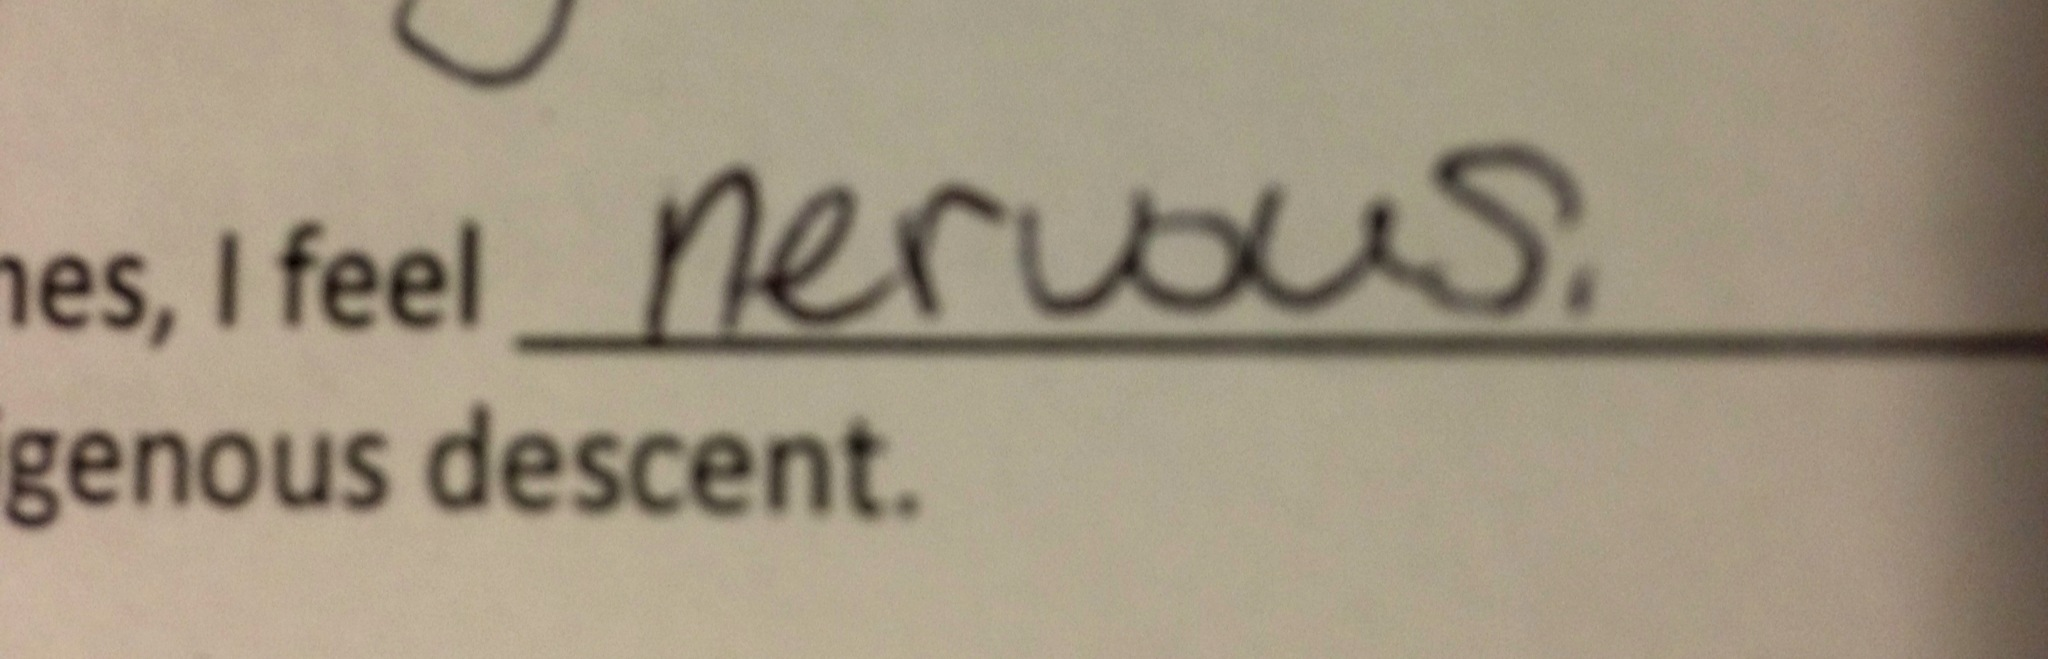 nes, I feel nervous.
igenous descent.